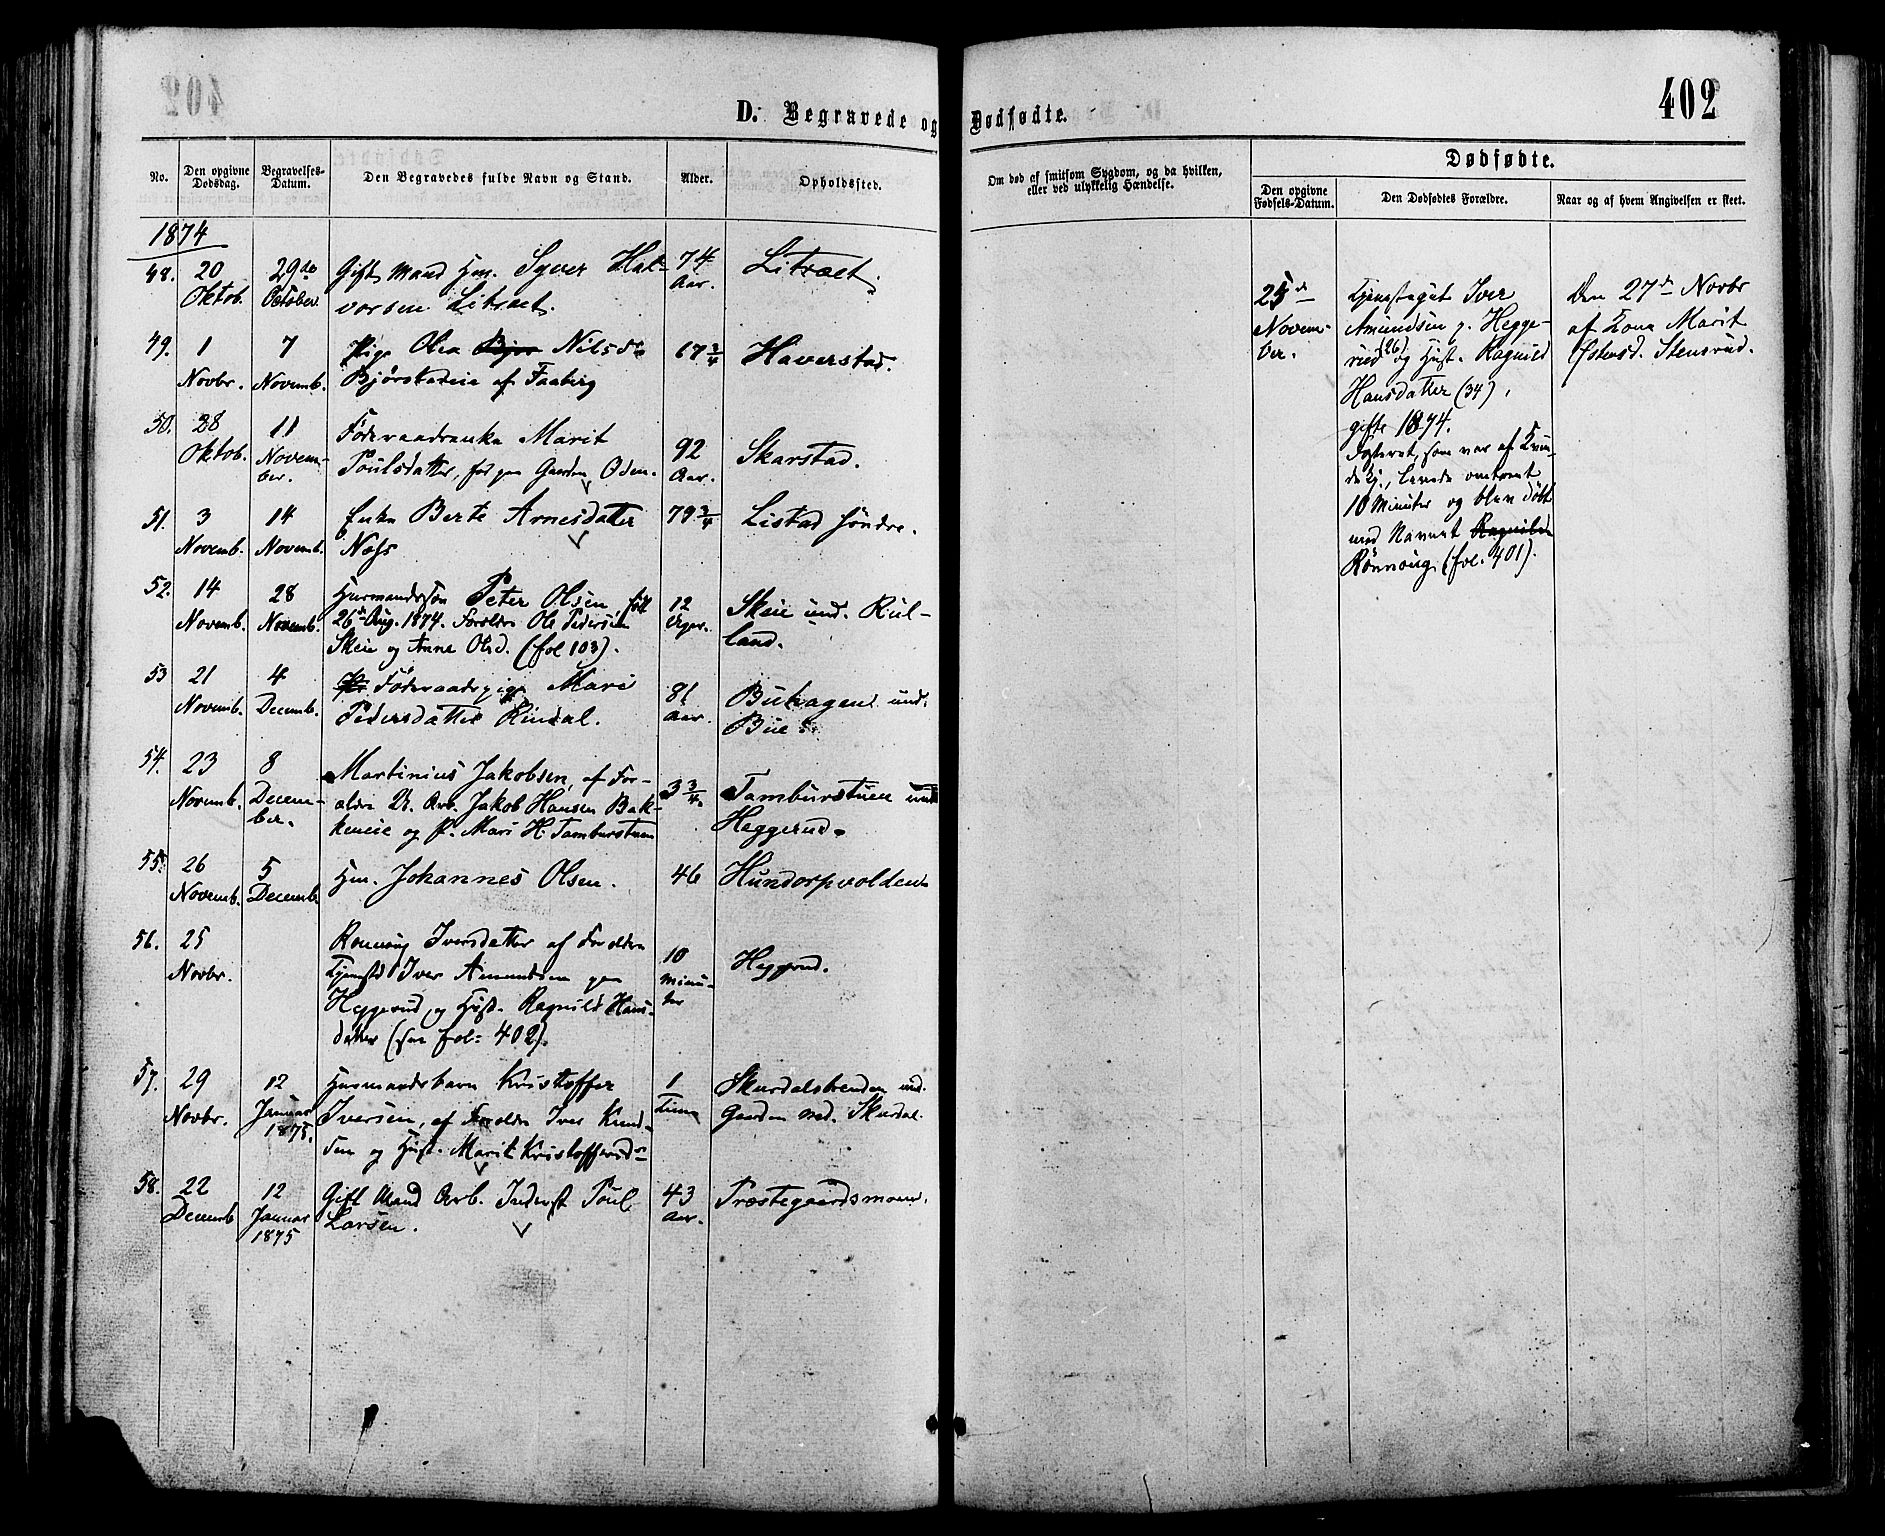 402
D. Begravede og Dødfødte.
No.
Den opgivne Dødsdag.
Begravelses-Datum.
Den Begravedes fulde Navn og Stand.
Alder.
Opholdssted.
Om død af smitsom Sygdom, og da hvilken,
eller ved ulykkelig Hændelse.
Dødfødte.
Den opgivne Fødsels-Datum.
Den Dødfødtes Forældre.
Naar og af hvem Angivelsen er skeet.
1874
48. 20 29de Gift Mand Hm. Syver Hal- 74 Litræet.
Oktob. October vorsen Litræet. Aar.
49. 1 7 Pige Olea Nilsd. 67 3/4 Haverstad.
Novbr. Novemb. Bjørstadeie af Faaberg
50. 28 11 Føderaadsenke Marit 92 Skarstad.
Oktob. Novem- Poulsdatter, før paa Gaarden Oden. Aar.
ber.
51. 3 14 Enke Berte Arnesdatter 79 3/4 Listad søndre.
Novemb. Novemb. Nofs
52. 14 28 Husmandssøn Peter Olsen, født 12 Skeie und. Rul-
Novemb. Novemb. 26de Aug. 1874. Foreldre Ole Pedersen Uger. land.
Skeie og Anne Olsd. (fol 103).
53 21 4 Føderaadspige Mari 81 Buhagen und.
Novemb. Decemb. Pedersdatter Rindal. Aar. Bue
54. 23 8 Martinius Jakobsen, af For- 3 3/4 Tamburstuen und
Novemb. Decem- ældre U. Arb. Jakob Hansen Bak- Heggerud.
ber. keneie og P. Mari H. Tamburstuen
55. 26 5 Hm. Johannes Olsen. 46 Hundorpvolden
Novemb. Decemb.
56. 25 Rønnaug Iversdatter af Foreldre 10 Heggerud.
Novbr. Tjenestd Iver Amundsen paa minu-
Heggerud og Hust. Ragnild Hans- ter
datter (see fol. 402).
57. 29 12 Husmandsbarn Kristoffer 1 Skurdalsbrenden und.
Novbr. Januar Iversen, af Foreldre Iver Knud- Time Gaarden ned. Skurdal.
1875. sen og Hust. Marit Kristoffersd.
58. 22 12 Gift Mand Arb. Inderst Poul 43 Præstegaardsmoen.
Decemb Januar Larsen. Aar.
1875
25de
Novem-
ber.
Tjenestegut Iver
Amundsen p. Hegge-
rud (26) og Hust. Ragnild
Hansdatter (34),
gifte 1874.
Fosteret, som var af Kvin-
dekj., levede omtrent
10 Minuter og blev døbt
med Navnet Ragnild
Rønnaug (fol. 401).
Den 27de Novbr
af Kona Marit
Østensd. Stensrud.